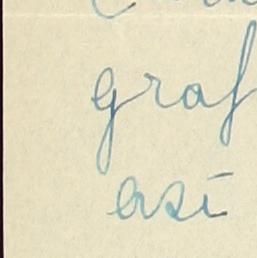 graf
así